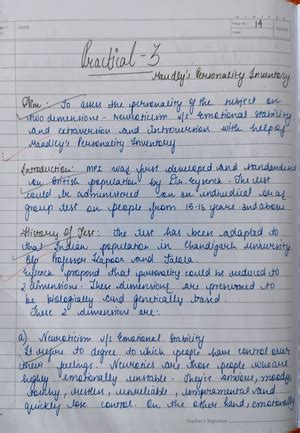 NAME
Page No. 14
Practical - 3
Maudley's Personality Inventory
Aim: To asses the personality of the subject on
two dimensions - Neuroticism v/s Emotional stability
and extraversion and introversion with help of
Maudley's Personality Inventory
Introduction: MPI was first developed and standardised
on British population by Eysenck. The test
could be administered on an individual or as
group test on people from 15-16 years and above.
History of Test: The test has been adapted to
that Indian population in Chandigarh university
by Professor Kapoor and
Eysenck proposed that personality could be reduced to
2 dimensions. These dimensions are presumed to
be biologically and genetically based.
These 2 dimensions are:
a) Neuroticism v/s Emotional Stability
It refers to degree to which people have control over
their feelings. Neurotics are those people who are
highly emotionally unstable. They're anxious, moody,
touchy, restless, unreliable, temperamental and
quickly lose control. On the other hand, emotionally
Teacher's Signature